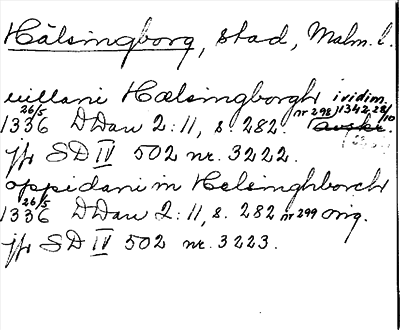 Hälsingborg, stad, Malm. l.
villani Hœlsingborgh i vidim.
26/5 1336 DDan 2:11, s. 282. nr 298) 1342 28/10 avskr.
jfr SD IV 502 nr. 3222.
oppidani in Helsinghborch
26/5 1336 DDan 2:11, s. 282 nr 299 orig.
jfr SD IV 502 nr. 3223.